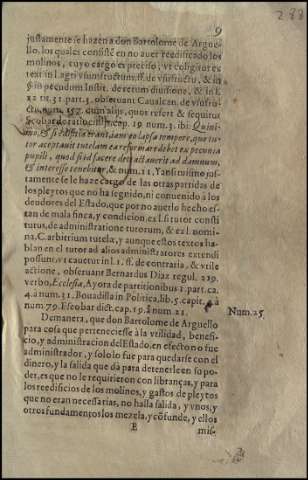 9
justamente se hazen a don Bartolome de Argue-
llo, los quales consistẽ en no auer reedificado los
molinos, cuyo cargo es preciso, vt colligitur ex
text in l. agri vsumfructum, ff. de vsufructu, & in
& in pecudum Instit. de rerum diuisione, & in l.
22 tit. 31. part. 3. obseruant Caualcan. de vsufru-
ctu, num. 157. cum alijs, quos refert & sequitur
Escobar de ratiocinijs, cap. 19. num. 3. ibi: Quini-
mo, & si ædificia erant iam eo lapsa tempore, quo tu-
tor acceptauit tutelam ea reformare debet ex pecunia
pupili, quod si id facere detrectauerit ad damnum,
& interesse tenebitur, & num. 11. Y an simismo jus-
tamente se le haze cargo de las otras partidas de
los pleytos que no ha seguido, ni conuenido a los
deudores del Estado, que por no auerlo hecho es-
tan de mala finca, y condicion, ex l. si tutor consti
tutus, de administratione tutorum, & ex l. nomi-
na, C. arbitrium tutelæ, y aunque estos textos ha-
blan en el tutor ad alios administratores extensi
possunt, vt cauetur in l. 1. ff. de contraria, & vtile
actione, obseruant Bernardus Diaz regul. 229.
verbo, Ecclesia, Ayora de partitionibus 1. part. ca.
4. à num. 31. Bouadilla in Politica, lib. 5. capit. 4. à
num. 79. Escobar dict. cap. 19. à num. 21.
Demanera, que don Bartolome de Arguello Num. 25.
para cosa que perteneciesse à la vtilidad, benefi-
cio, y administracion del Estado, en efecto no fue
administrador, y solo lo fue para quedarse con el
dinero, y la salida que dà para detenerle en su po-
der, es que no le requirieron con libranças, y para
los reedificios de los molinos, y gastos de pleytos
que no eran necessarias, no halla salida, y vnos, y
otros fundamentos los mezcla, y cõfunde, y ellos
B mis-